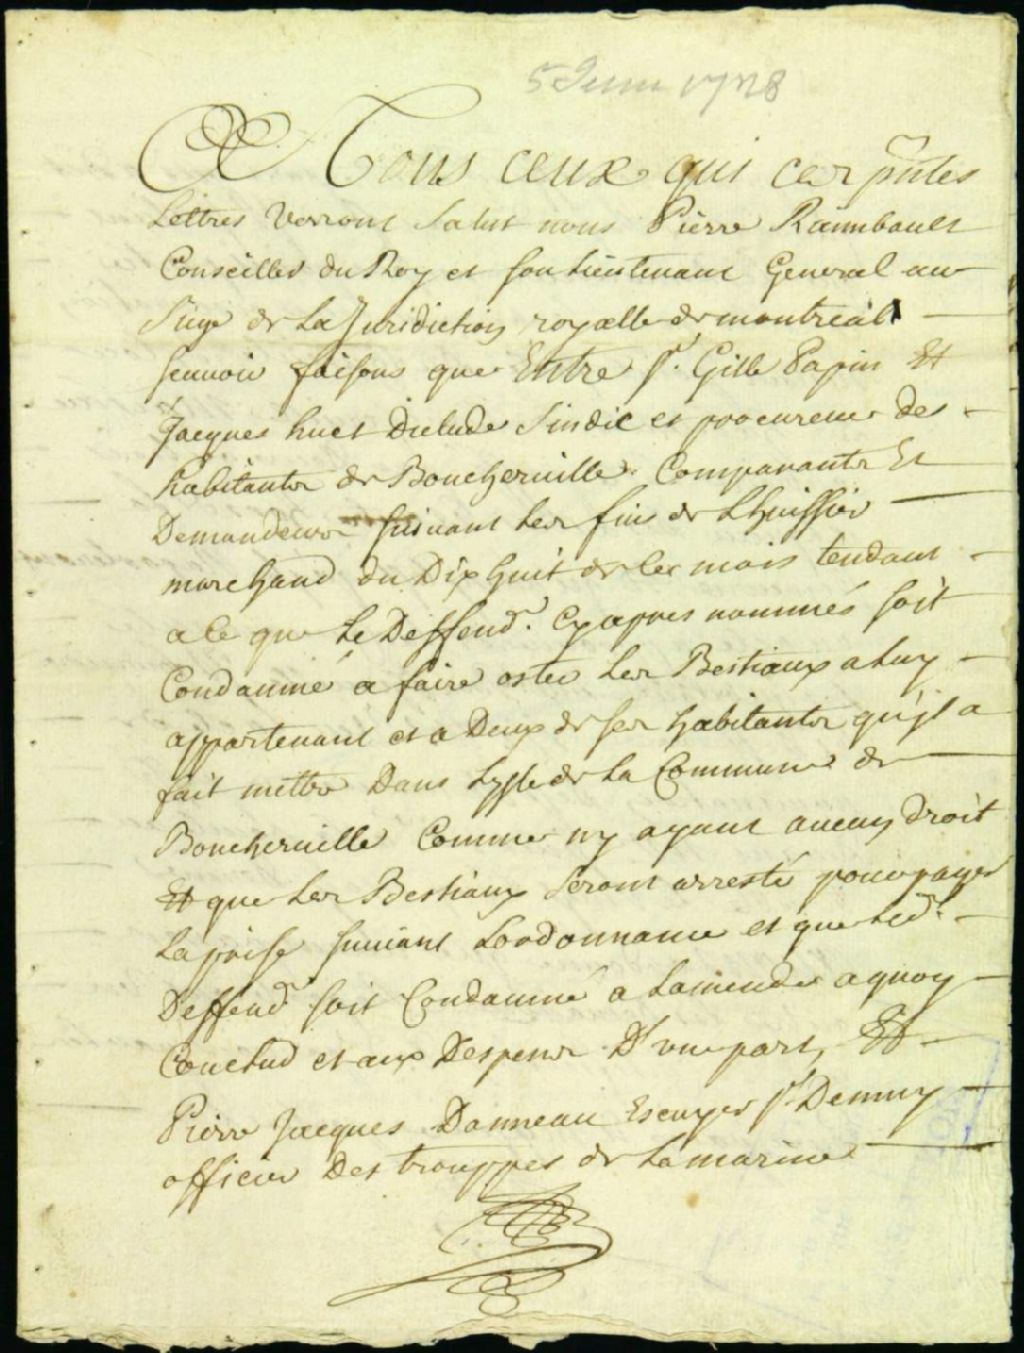 5 Juin 1728
A Tous ceux qui ces pntes
Lettres verront Salut nous Pierre Raimbault
Conseiller du Roy et son Lieutenant General au
Siege de La Juridiction royalle de montreal
scauoir faisons que Entre Sr. Gille Papin Et
Jacques huet Dulude Sindic et procureur des
habitants de Boucheruille Comparants Et
Demandeurs suiuant Les fins de Lhuissier
marchand du Dix huit de ce mois tendant
a ce que Le Deffendr. Cy apres nommés soit
Condamné a faire oster Les Bestiaux a Luy
appartenant et a Deux de ses habitants qu'jl a
fait mettre Dans Lysle de La Commune de
Boucheruille Comme ny ayant aucuy Droit
Et que Les Bestiaux seront arresté pour payer
La prise suiuant Lordonnance et que Led.
Deffendr soit Condamné a Lamende a quoy
Conclud et aux Despens D'une part, Et
Pierre Jacques Danneau Escuyer Sr. Demuy
officier Des trouppes de La marine